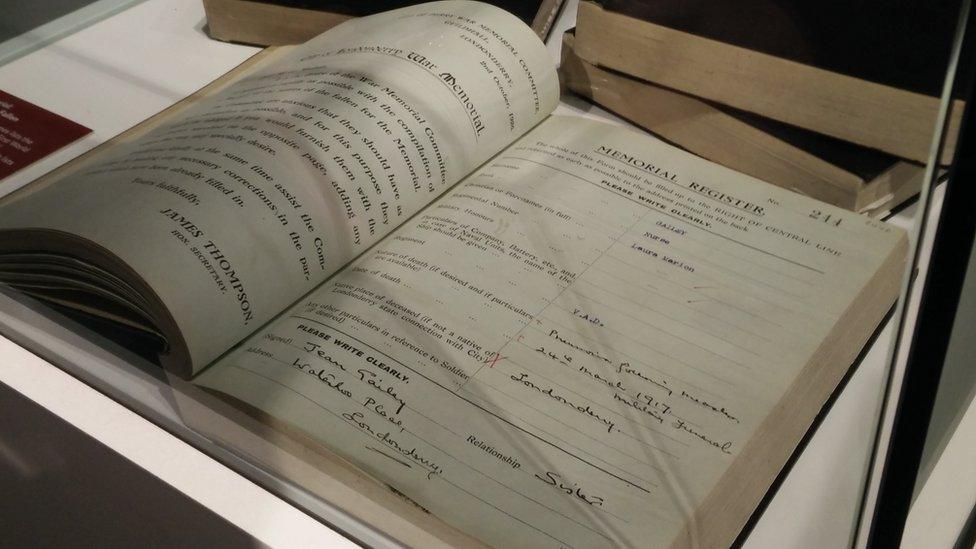 WAR MEMORIAL COMMITTEE
GUILDHALL,
LONDONDERRY,
2nd October,
War Memorial.
of the War Memorial Committee
as possible with the compilation of
of the fallen for the Memorial.
anxious that they should have as
possible, and for this purpose they
if you would furnish them with the
on the opposite page, adding any
specially desire.
at the same time assist the Com-
necessary corrections in the par-
been already filled in.
Yours faithfully,
JAMES THOMPSON,
HON. SECRETARY.
MEMORIAL REGISTER.
No. 244
The whole of this Form should be filled up to the RIGHT OF CENTRAL LINE
and returned as early as possible to the address printed on the back
PLEASE WRITE CLEARLY.
GAILEY
Nurse
Christian or Forenames (in full) Laura Marion
Regimental Number
Military Honours
Particulars of Company, Battery, etc., and
in case of Naval Units, the name of the
Ship should be given V.A.D.
Regiment
Nature of death (if desired and if particulars
are available) Pneumonia following Measles.
Date of death 24th March 1917. Military Funeral
Native place of deceased (if not a native of
Londonderry state connection with City) Londonderry.
Any other particulars in reference to Soldier
(if desired)
PLEASE WRITE CLEARLY.
(Signed) Jean Gailey Relationship Sister.
Address Waterloo Place,
Londonderry.